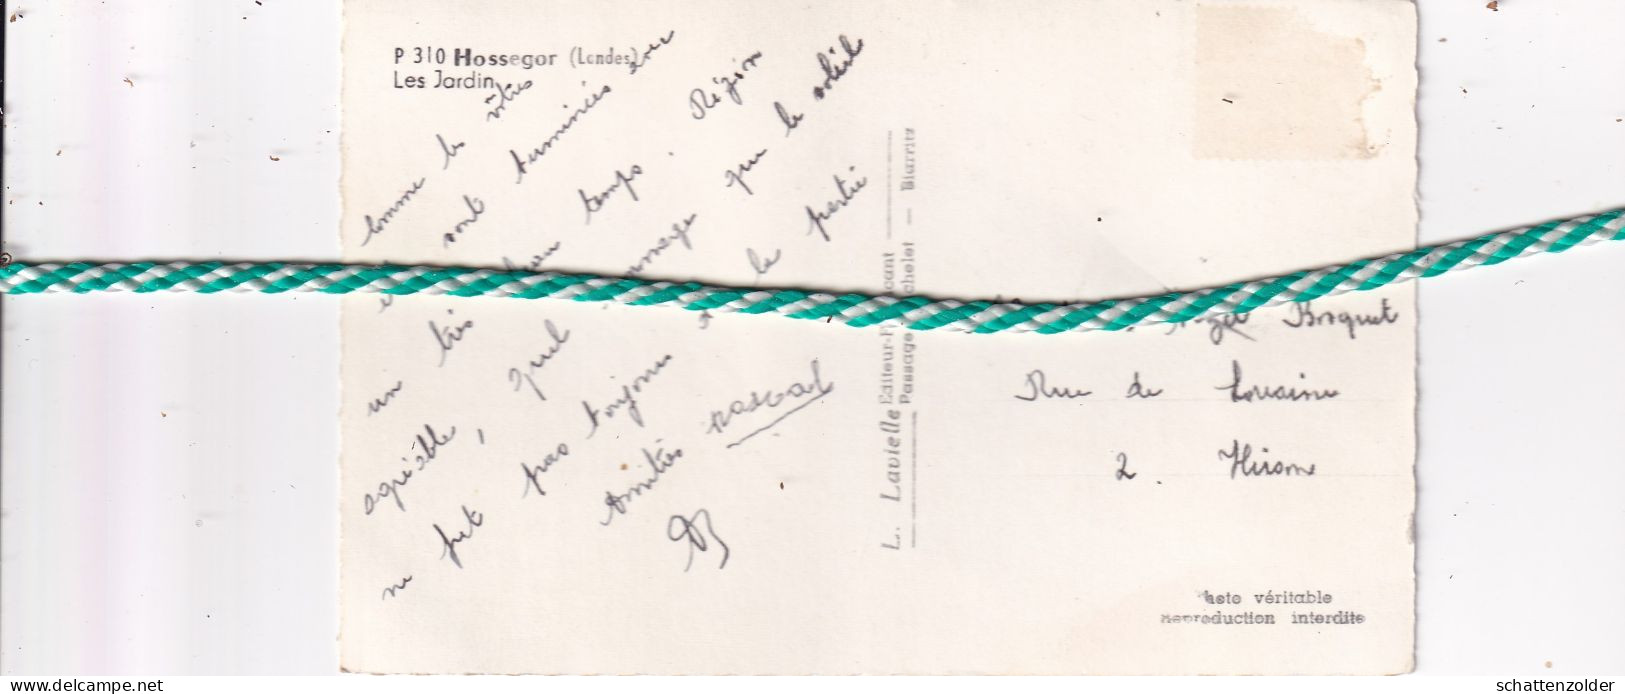 P 310 Hossegor (Landes)
Les Jardin
Comme les vôtres
sont terminées avec
un très beau temps. Région
agréable, quel dommage que le soleil
ne fut pas toujours de la partie
Amitiés Pascal
L. Lavielle Editeur-
Passage — Biarritz
Roger Broquet
Rue de Louaine
2. Hirson
Photo véritable
Reproduction interdite
www.delcampe.net
schattenzolder